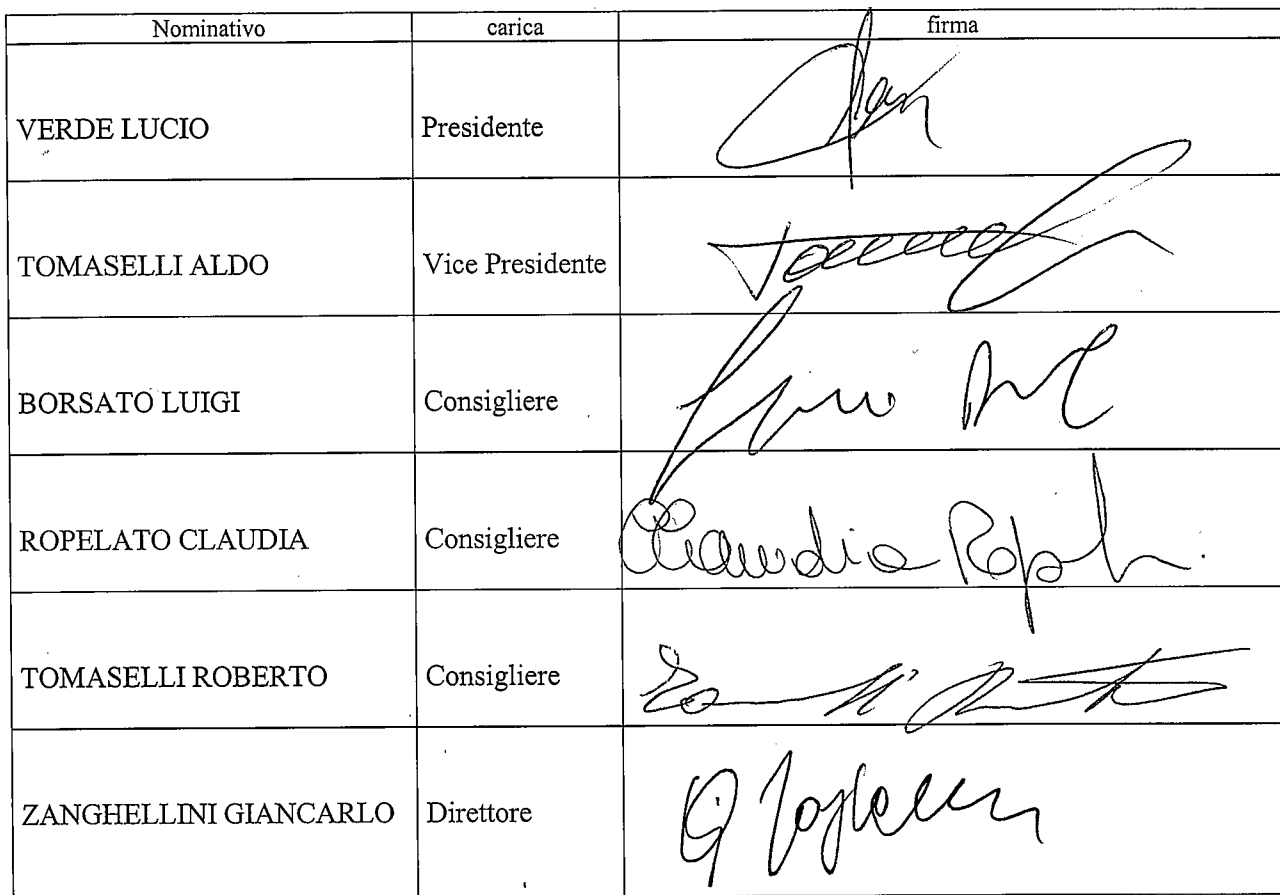 Nominativo carica firma
VERDE LUCIO Presidente
TOMASELLI ALDO Vice Presidente
BORSATO LUIGI Consigliere
ROPELATO CLAUDIA Consigliere Claudia
TOMASELLI ROBERTO Consigliere
ZANGHELLINI GIANCARLO Direttore